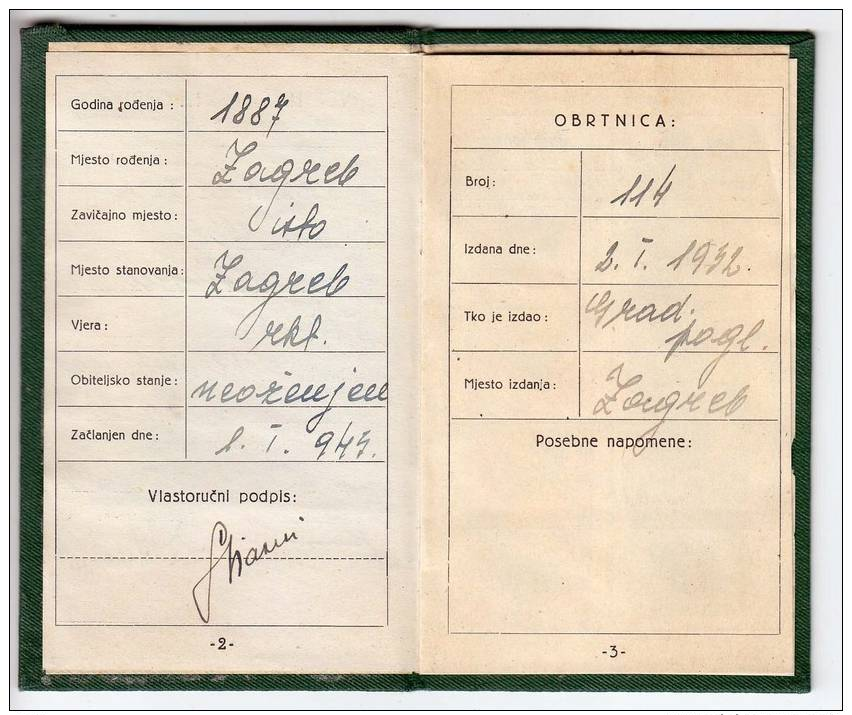 Godina rođenja : 1887
Mjesto rođenja : Zagreb
Zavičajno mjesto : isto
Mjesto stanovanja: Zagreb
Vjera : rkt.
Obiteljsko stanje : neoženjen
Začlanjen dne : 1. I. 943.
Vlastoručni podpis:
-2-
OBRTNICA:
Broj: 114
Izdana dne : 2. I. 1932.
Tko je izdao : Grad.
pogl.
Mjesto izdanja: Zagreb
Posebne napomene:
-3-